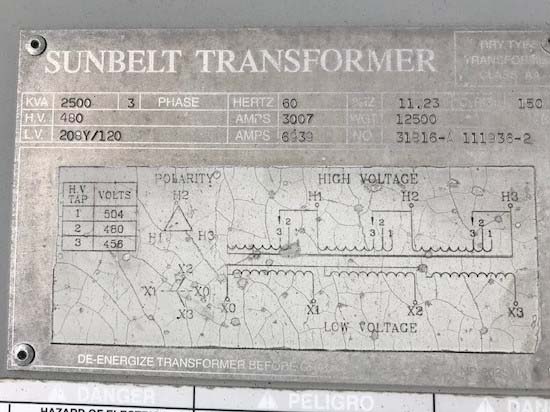 SUNBELT TRANSFORMER
DRY TYPE
TRANSFORMER
CLASS AA
KVA 2500 3 PHASE HERTZ 60 %IZ 11.23 150
H.V. 480 AMPS 3007 WGT 12500
L.V. 208Y/120 AMPS 6939 NO 31816-A 111936-2
POLARITY HIGH VOLTAGE
H.V. TAP VOLTS
1 504
2 480
3 456
H2
H1 H3
X2
X1 X0
X3
H1 H2 H3
2 2 2
3 1 3 1 3 1
X0 X1 X2 X3
LOW VOLTAGE
DE-ENERGIZE TRANSFORMER BEFORE
DANGER PELIGRO DANGER
HAZARD OF